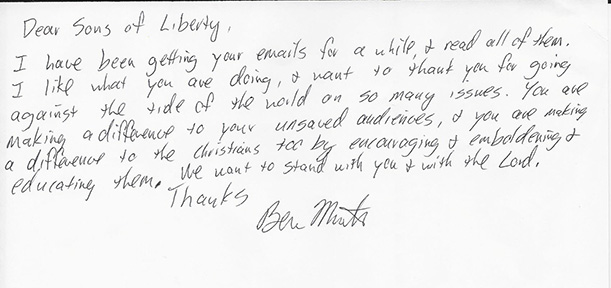 Dear Sons of Liberty,
I have been getting your emails for a while, & read all of them.
I like what you are doing, & want to thank you for going
against the tide of the world on so many issues. You are
making a difference to your unsaved audiences, & you are making
a difference to the Christians too by encouraging & emboldening &
educating them. We want to stand with you & with the Lord.
Thanks
Ben